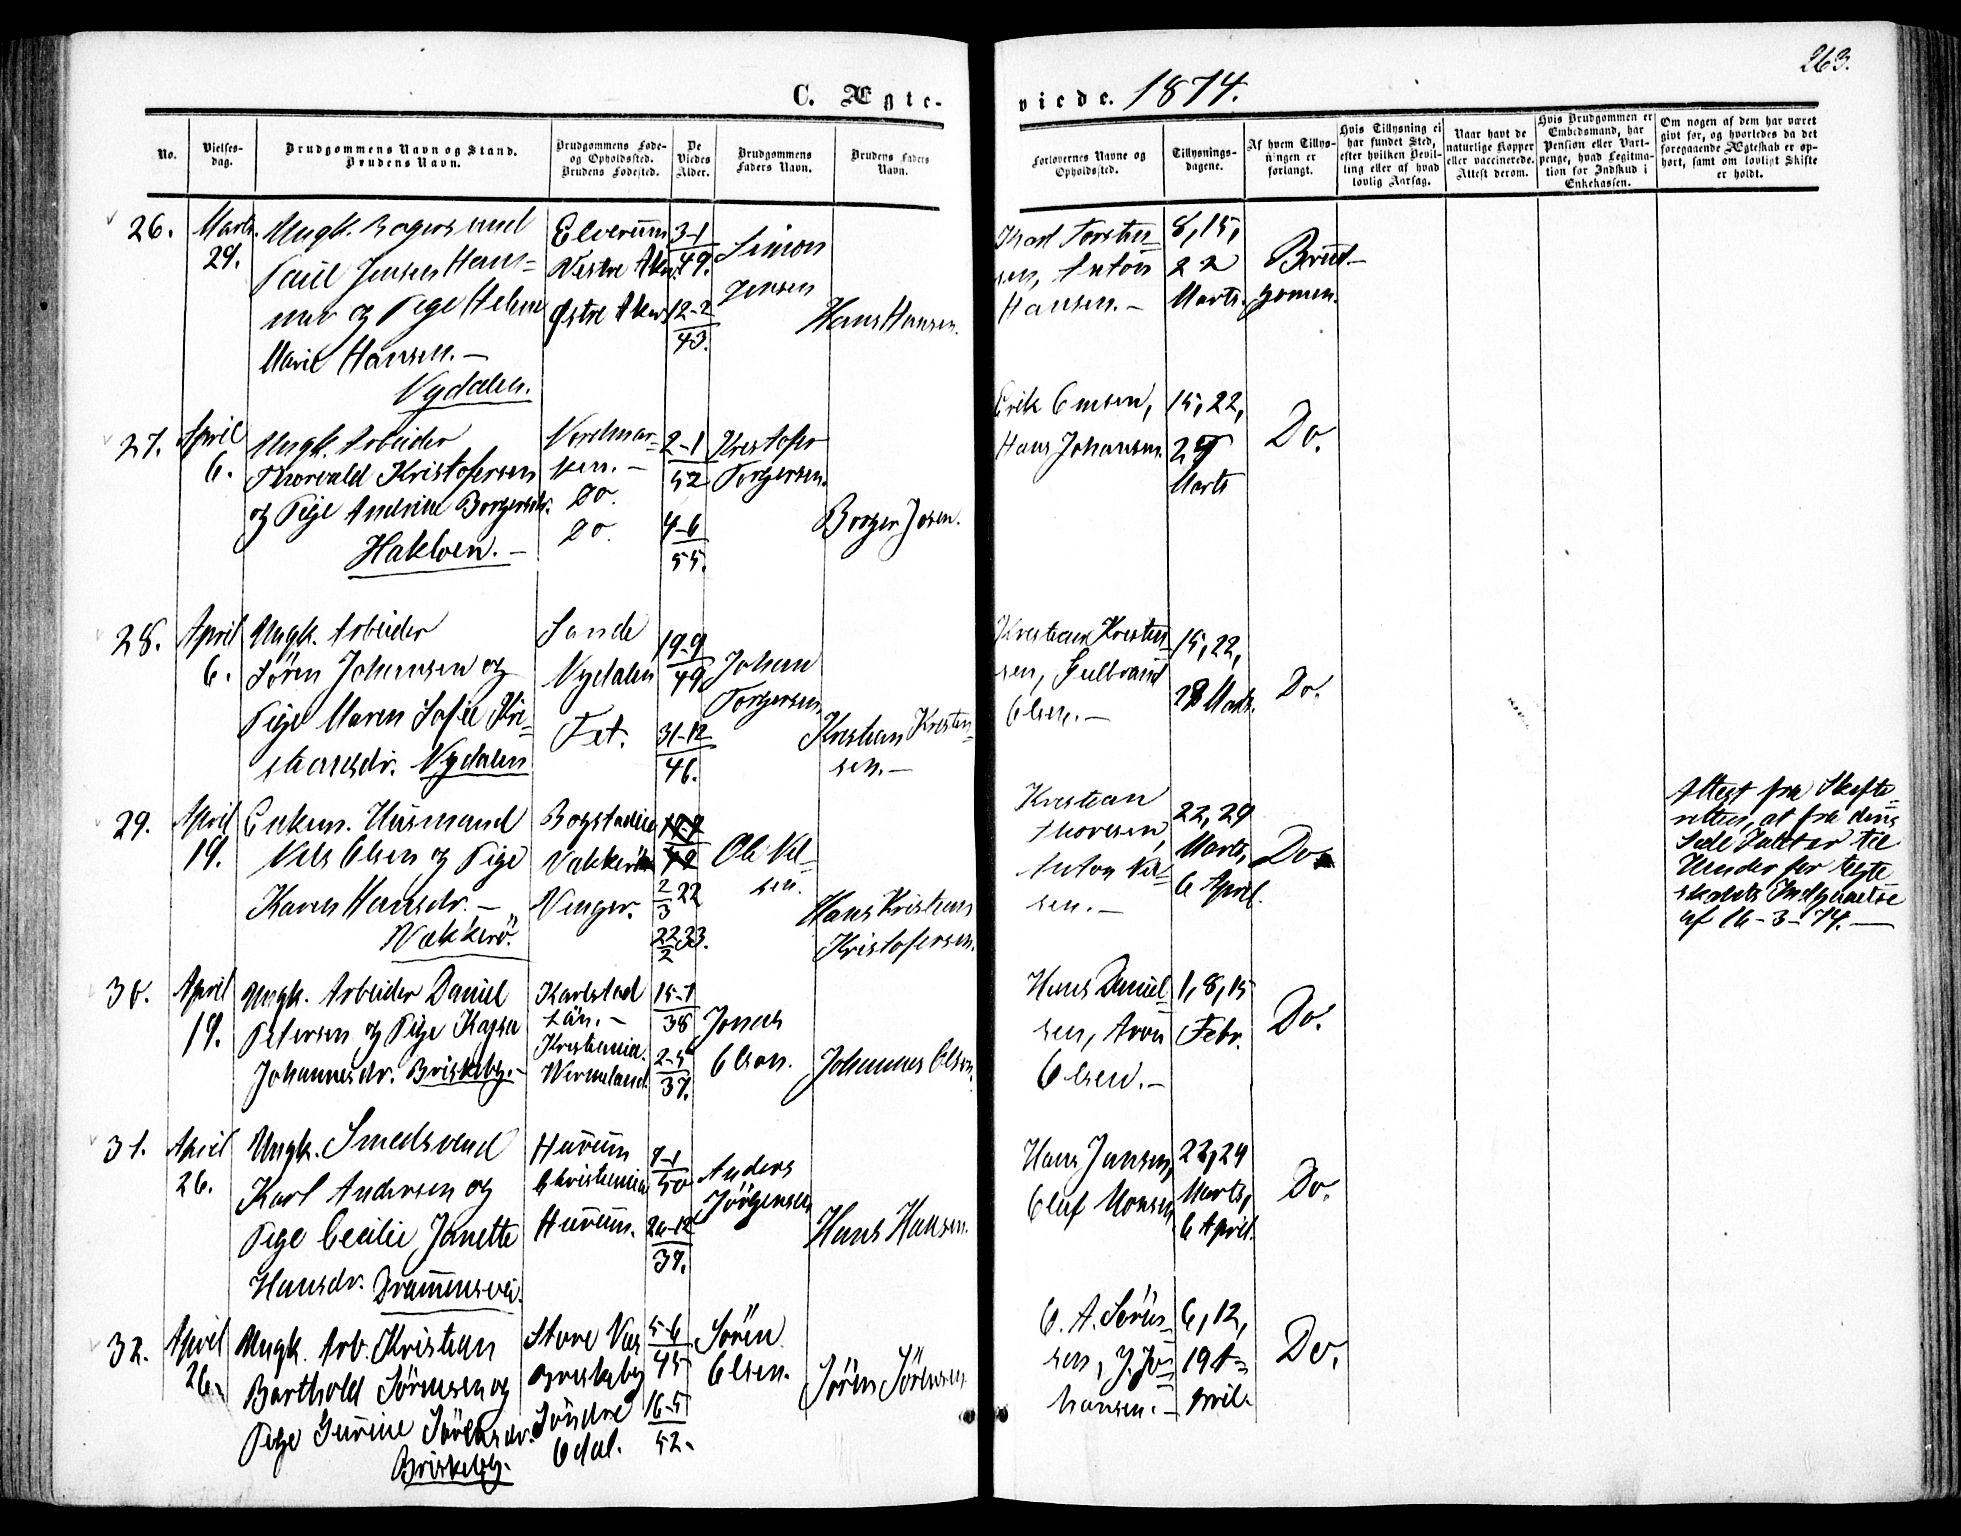 263.
C. Ægte-
viede. 1874.
No.
Vielses-
dag.
Brudgommens Navn og Stand.
Brudens Navn.
Brudgommens Føde-
og Opholdssted.
Brudens Fødested.
De
Viedes
Alder.
Brudgommens
Faders Navn.
Brudens Faders
Navn.
Forlovernes Navne og
Opholdssted.
Tillysnings-
dagene.
Af hvem Tillys-
ningen er
forlangt.
Hvis Tillysning ei
har fundet Sted,
efter hvilken Bevil-
ling eller af hvad
lovlig Aarsag.
Naar havt de
naturlige Kopper
eller vaccinerede.
Attest derom.
Hvis Brudgommen er
Embedsmand, har
Pension eller Vart-
penge, hvad Legitima-
tion for Indskud i
Enkekassen.
Om nogen af dem har været
gift før, og hvorledes da det
foregaaende Ægteskab er op-
hørt, samt om lovligt Skifte
er holdt.
26.
Marts
29.
Ungk. Bagersvend
Paul Jensen Ham-
mer og Pige Helene
Marie Hansen. -
Nydalen.
Elverum
Vestre Aker
Østre Aker
3-1
49.
12-2
43.
Simon
Jensen
Hans Hansen.
Karl Torsten-
sen, Anton
Hansen. -
8, 15,
22
Marts.
Brud-
gomen.
27.
April
6.
Ungk. Arbeider
Thorvald Kristofersen
og Pige Andrine Borgersdr.
Hakloen. -
Nordmar-
ken. -
Do.
Do.
2-1
52
4-6
55.
Kristofer
Torgersen.
Borger Josen.
Erik Ensen,
Hans Johansen.
15, 22,
29
Marts
Do.
28.
April
6.
Ungk. Arbeider
Søren Johansen og
Pige Maren Sofie Kri-
stiansdr. Nydalen
Sande
Nydalen
Fet.
19-9
49
31-12
46.
Johan
Torgersen
Kristian Kristen-
sen. -
Kristian Kristen-
sen, Gulbrand
Olsen. -
15, 22,
29 Marts.
Do.
29.
April
19.
Enkem. Husmand
Nels Olsen og Pige
Karen Hansdr. -
Vækkerö.
Bogstadlia
Vækkerö
Vinger.
2
3 22
22
2 33.
Ole Nel-
sen.
Hans Kristian
Kristofersen.
Kristian
Thoresen,
Anton Nel-
sen. -
22, 29
Marts,
6 April.
Do.
Attest fra Skifte-
retten, at fra dens
Side Intet er til
Hinder for Ægte
skabets Indgaaelse
af 16-3-74. -
30.
April
19.
Ungk. Arbeider Daniel
Petersen og Pige Kajsa
Johannesdr. Briskeby. -
Karlstad
Län. -
Kristiania.
Wermeland.
15-1
38
2-5
37.
Jonas
Olson.
Johannes Olson.
Hans Daniel-
sen, Aron
Olsen. -
1, 8, 15
Febr.
Do.
31.
April
26.
Ungk. Smedsvend
Karl Andersen og
Pige Cecilie Janette
Hansdr. Drammensvei.
Hurum
Christiania
Hurum.
7-1
50
26-12
37.
Anders
Jörgensen
Hans Hansen.
Hans Jansen,
Oluf Monsen
22, 29
Marts,
6 April.
Do.
32.
April
26.
Ungk. Arb. Kristian
Barthold Sörensen og
Pige Gurine Sörensdr.
Briskeby.
Store Næs
Briskeby
Söndre
Odal.
5-6
45
16-5
52.
Sören
Olsen.
Sören Sörensen
O. A. Sören-
sen, J. Jo-
hansen. -
6, 12,
19 A-
pril.
Do.